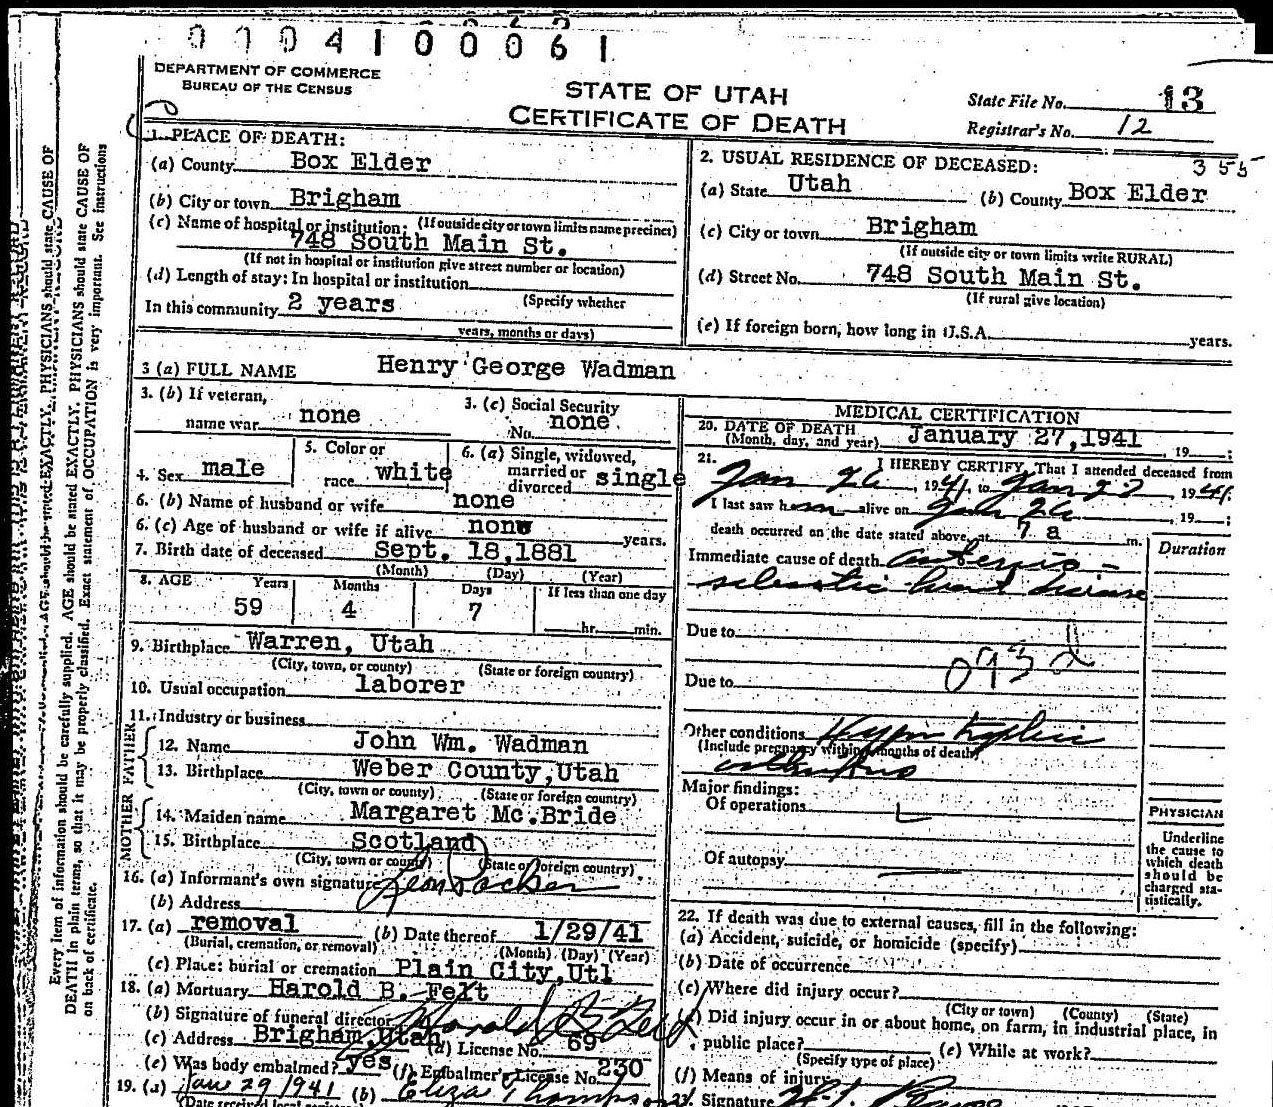 0004100061
DEPARTMENT OF COMMERCE
BUREAU OF THE CENSUS
STATE OF UTAH
CERTIFICATE OF DEATH
State File No. 13
Registrar's No. 12
355
1. PLACE OF DEATH:
(a) County Box Elder
(b) City or town Brigham
(c) Name of hospital or institution: (If outside city or town limits name precinct)
748 South Main St.
(If not in hospital or institution give street number or location)
(d) Length of stay: In hospital or institution
(Specify whether
In this community 2 years
years, months or days)
2. USUAL RESIDENCE OF DECEASED:
(a) State Utah (b) County Box Elder
(c) City or town Brigham
(If outside city or town limits write RURAL)
(d) Street No. 748 South Main St.
(If rural give location)
(e) If foreign born, how long in U.S.A. years.
3 (a) FULL NAME Henry George Wadman
3. (b) If veteran,
name war none
3. (c) Social Security
No. none
4. Sex male
5. Color or
race white
6. (a) Single, widowed,
married or
divorced single
6. (b) Name of husband or wife none
6. (c) Age of husband or wife if alive none years.
7. Birth date of deceased Sept. 18,1881
(Month) (Day) (Year)
8. AGE Years Months Days If less than one day
59 4 7 hr. min.
9. Birthplace Warren, Utah
(City, town, or county) (State or foreign country)
10. Usual occupation laborer
11. Industry or business
FATHER
12. Name John Wm. Wadman
13. Birthplace Weber County,Utah
(City, town or county) (State or foreign country)
MOTHER
14. Maiden name Margaret Mc.Bride
15. Birthplace Scotland
(City, town or county) (State or foreign country)
16. (a) Informant's own signature Leon Packer
(b) Address
17. (a) removal (b) Date thereof 1/29/41
(Burial, cremation, or removal) (Month) (Day) (Year)
(c) Place: burial or cremation Plain City,Utl
18. (a) Mortuary Harold B. Felt
(b) Signature of funeral director Harold B Felt
(c) Address Brigham,Utah (d) License No. 69
(e) Was body embalmed? yes (f) Embalmer's License No. 230
19. (a) Jan 29 1941 (b) Eliza Thompson
(Date received local registrar)
MEDICAL CERTIFICATION
20. DATE OF DEATH
(Month, day, and year) January 27,1941, 19 ;
21. I HEREBY CERTIFY, That I attended deceased from
Jan 26, 1941, to Jan 27, 1941.
I last saw him alive on Jan 26, 19 ;
death occurred on the date stated above, at 7 a m.
Duration
Immediate cause of death arterio-
sclerotic heart disease
Due to
093d
Due to
Other conditions Hypertrophic
(Include pregnancy within months of death)
arthritis
Major findings:
Of operations
Of autopsy
PHYSICIAN
Underline
the cause to
which death
should be
charged sta-
tistically.
22. If death was due to external causes, fill in the following:
(a) Accident, suicide, or homicide (specify)
(b) Date of occurrence
(c) Where did injury occur?
(City or town) (County) (State)
(d) Did injury occur in or about home, on farm, in industrial place, in
public place? (e) While at work?
(Specify type of place)
(f) Means of injury
23. Signature
Every item of information should be carefully supplied. AGE should be stated EXACTLY. PHYSICIANS should state CAUSE OF
DEATH in plain terms, so that it may be properly classified. Exact statement of OCCUPATION is very important. See instructions
on back of certificate.